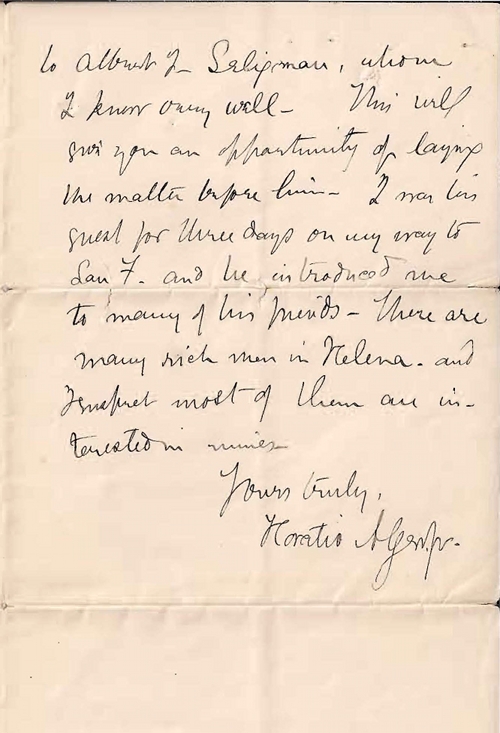 to Albert J. Seligman, whom
I know very well - This will
give you an opportunity of laying
the matter before him - I was his
guest for three days on my way to
San F. and he introduced me
to many of his friends - There are
many rich men in Helena - and
I suspect most of them are in-
terested in mines -
Yours truly,
Horatio Alger, Jr.